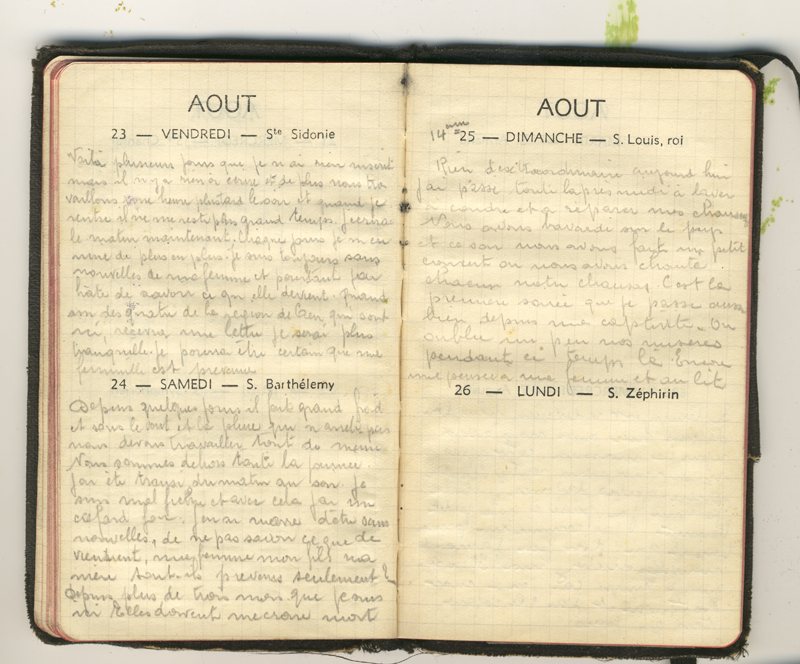 AOUT
23 — VENDREDI — Ste Sidonie
Voila plusieurs jours que je n ai rien inscrit
mais il n y a rien à et de plus nous tra
vaillons une heure plustard le soir et quand je
rentre il ne me reste plus grand temps. J ecris
le matin maintenant. Chaque jour je m en
nuie de plus en plus. je suis toujours sans
nouvelles de ma femme et pourtant j ai
hâte de savoir ce qu elle devient. Quand
un des gratu de la region de Caen qui sont
ici, recevra une lettre je serai plus
tranquille. je pourrai être certain que ma
femme est prevenue
24 — SAMEDI — S. Barthélemy
Depuis quelques jours il fait grand froid
et sous le vent et la pluie qui n arrete pas
nous devons travailler tout de meme
Nous sommes dehors toute la journée.
J ai ete trempe du matin au soir. Je
suis mal fichu et avec cela j ai un
cafard fou. J en ai marre d être sans
nouvelles, de ne pas savoir ce que de
viennent, ma femme mon fils ma
mère sont-ils prevenus seulement ?
Depuis plus de trois mois que je suis
ici Elles doivent me croire mort
AOUT
14 em 25 — DIMANCHE — S. Louis, roi
Rien d extraordinaire aujourd hui
j ai passé toute l apres midi à laver
a coudre et a reparer mes chaussu
Nous avons bavardé sur le pays
et ce soir nous avons fait un petit
concert ou nous avons chanté
chacun notre chanson. C est la
premiere soirée que je passe aussi
bien depuis ma captivité. On
oublie un peu nos miseres
pendant ce temps la. Encore
une pensée a ma femme et au lit
26 — LUNDI — S. Zéphirin